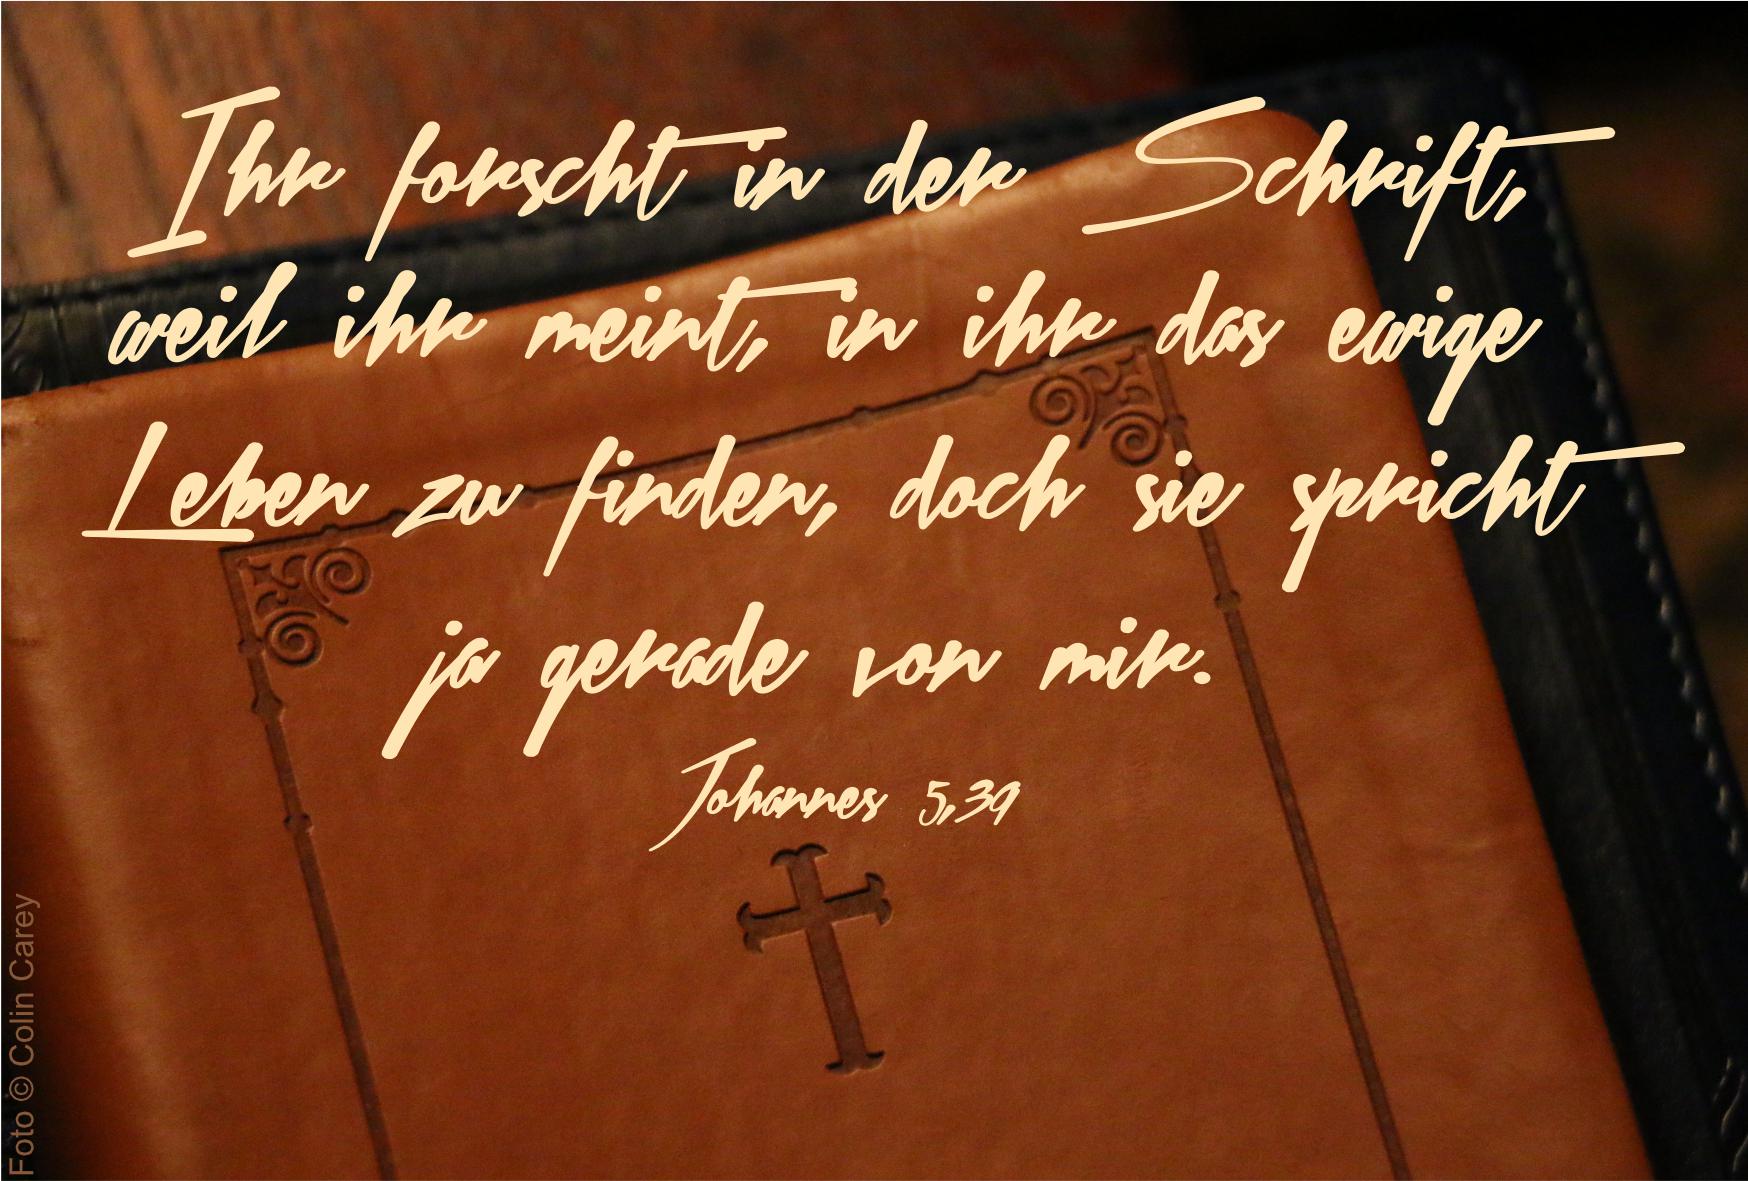 Ihr forscht in der Schrift,
weil ihr meint, in ihr das ewige
Leben zu finden, doch sie spricht
ja gerade von mir.
Johannes 5,39
Foto © Colin Carey